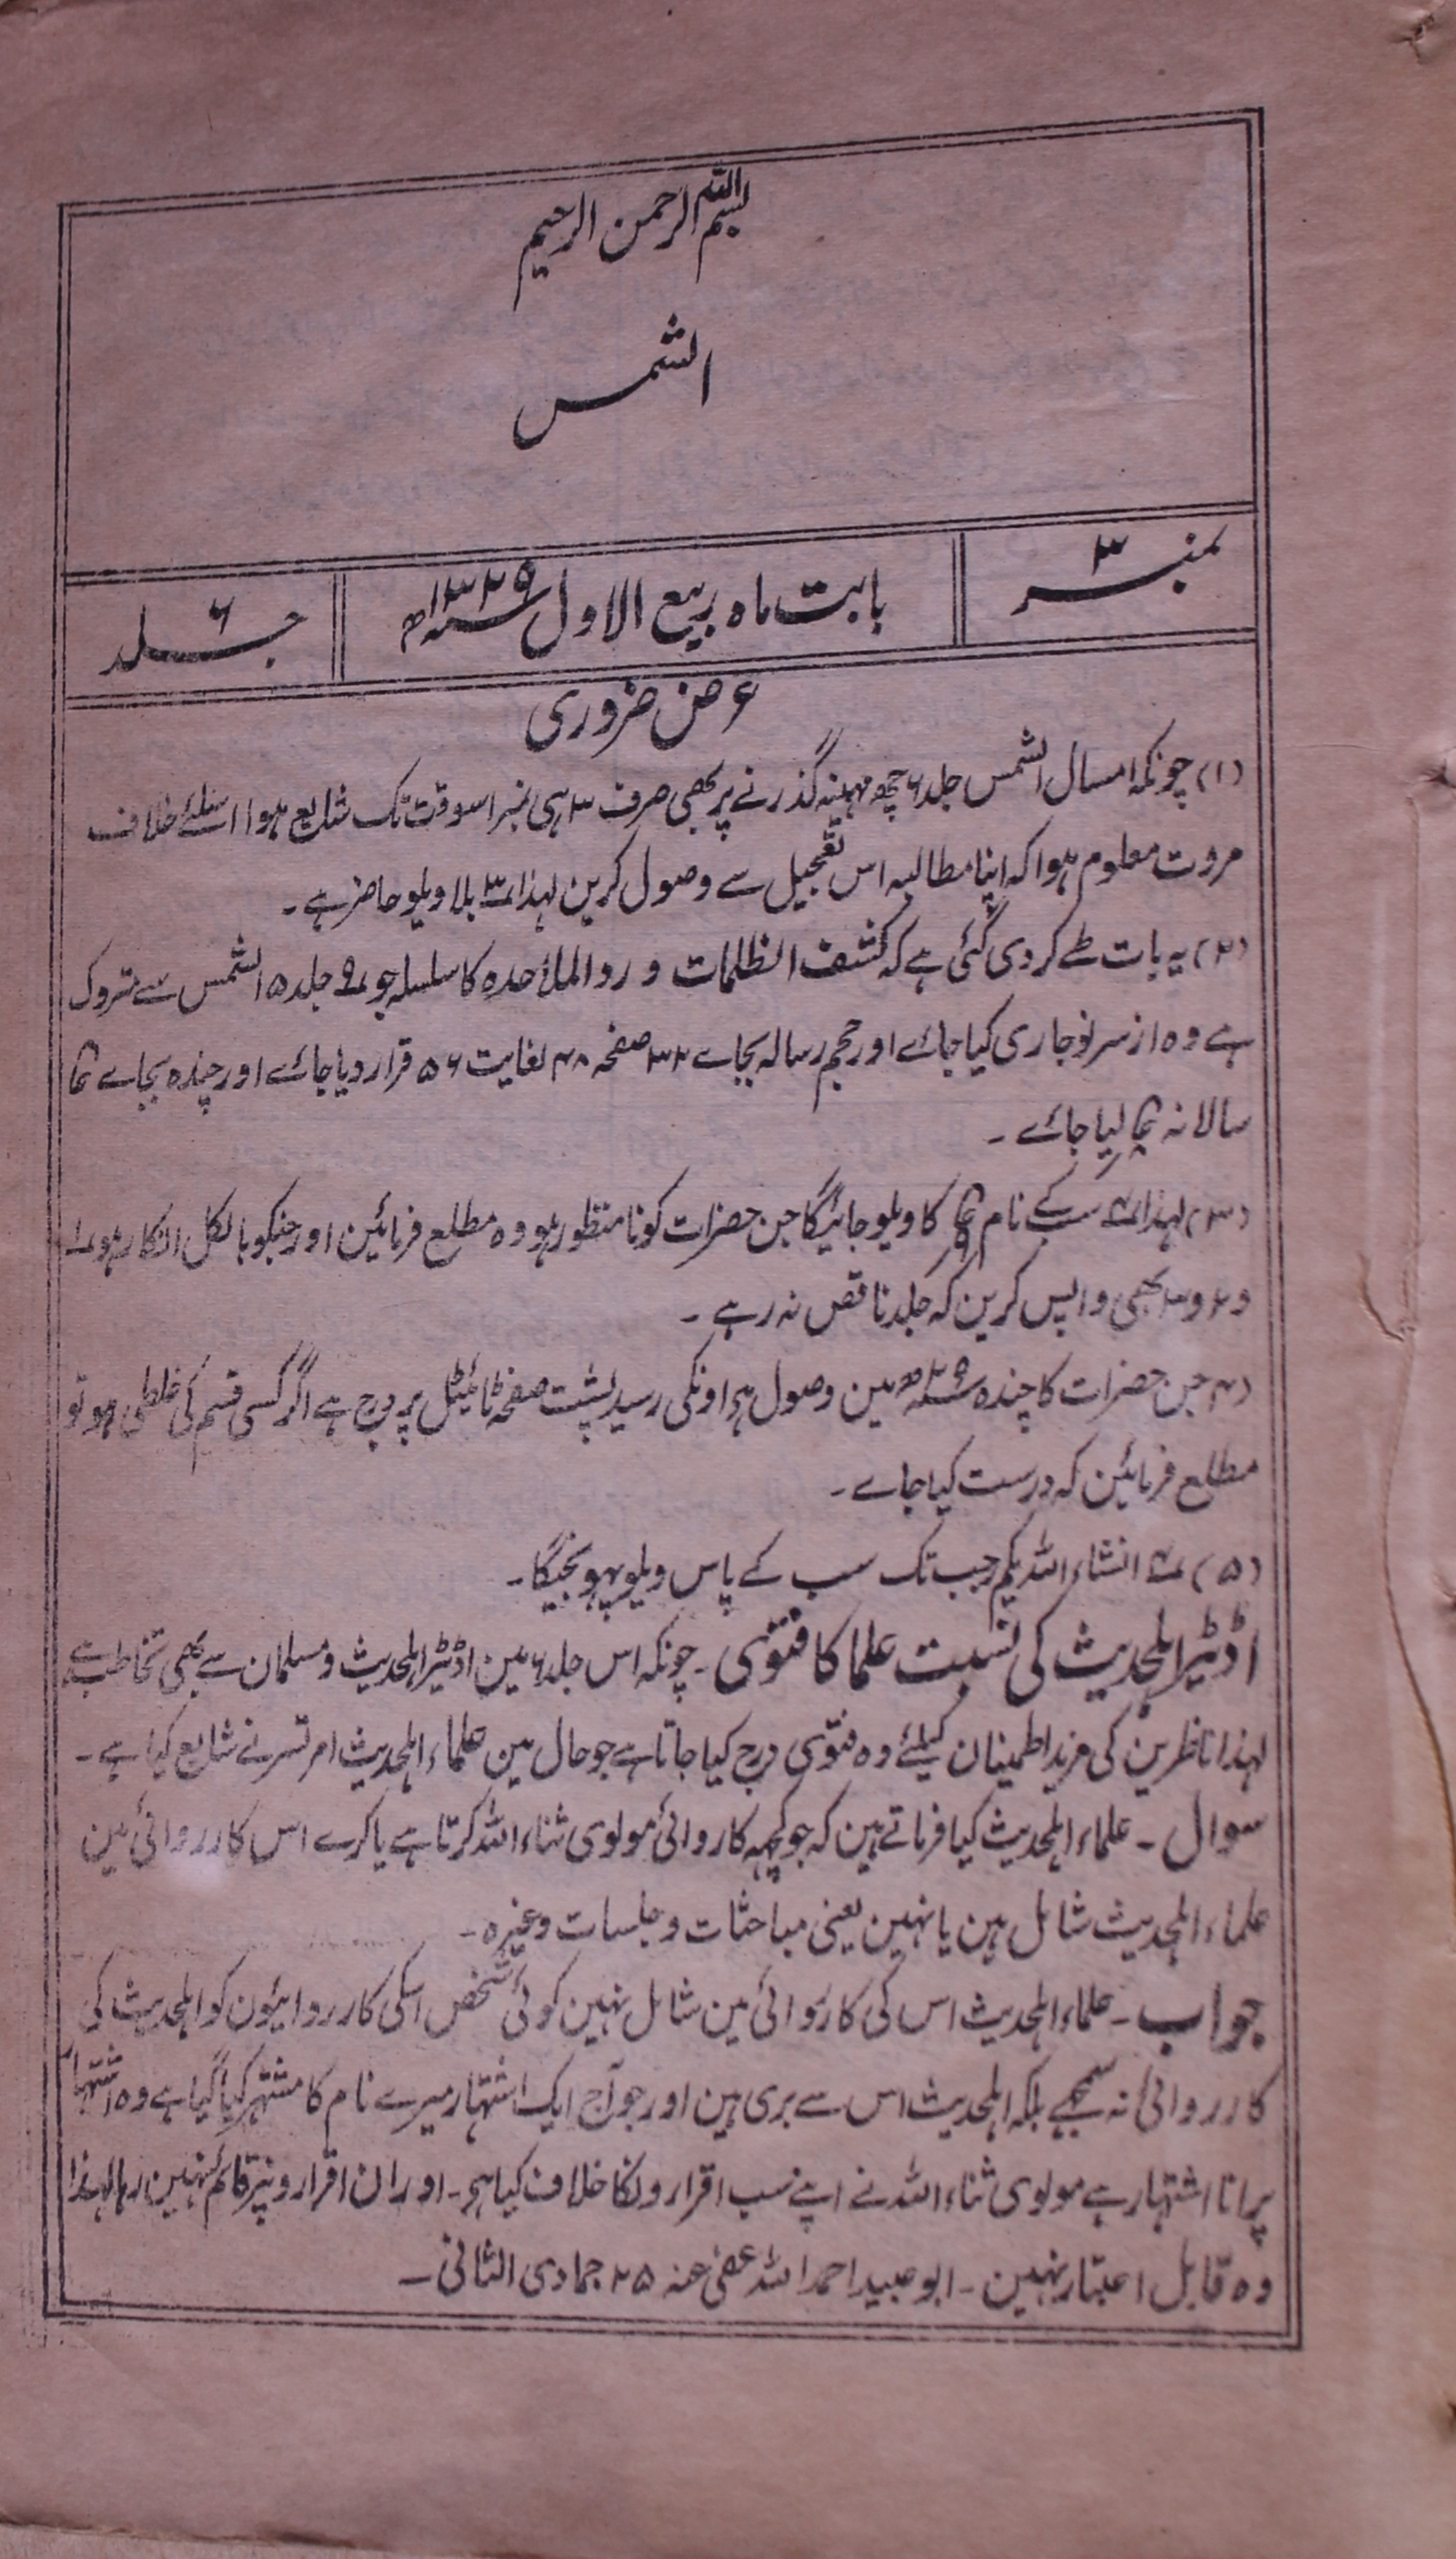 بسم اللہ الرحمن الرحیم
الشمس
نمبر ۳
بابت ماہ ربیع الاول ۱۳۲۹ھ
جلد ۶
عرض ضروری
(۱) چونکہ امسال الشمس جلد ۶ چھ مہینہ گذرنے پر بھی صرف ۳ ہی نمبر اسوقت تک شایع ہوا اسلئے خلاف
مروت معلوم ہوا کہ اپنا مطالبہ اس تعجیل سے وصول کرین لہذا نمبر ۳ بلا ویلو حاضر ہے۔
(۲) یہ بات طے کر دی گئی ہے کہ کشف الظلمات و رد الملاحدہ کا سلسلہ جو نمبر ۹ جلد ۵ الشمس سے متروک
ہے وہ از سر نو جاری کیا جائے اور حجم رسالہ بجاے ۳۲ صفحہ ۴۸ لغایت ۵۶ قرار دیا جائے اور چندہ بجاے
سالانہ لیا جائے۔
(۳) لہذا نمبر ۴ سب کے نام کا ویلو جائیگا جن حضرات کو نامنظور ہو وہ مطلع فرمائین اور جنکو بالکل انکار ہو نمبر ۱
و ۲ و ۳ بھی واپس کرین کہ جلد ناقص نہ رہے۔
(۴) جن حضرات کا چندہ مین وصول ہوا اونکی رسید پشت صفحہ ٹائیٹل پر درج ہے اگر کسی قسم کی غلطی ہو تو
مطلع فرمائین کہ درست کیا جاے۔
(۵) نمبر ۴ انشاء اللہ یکم رجب تک سب کے پاس ویلو پہونچیگا۔
اڈیٹر اہلحدیث کی نسبت علما کا فتوی۔ چونکہ اس جلد ۶ مین اڈیٹر اہلحدیث و مسلمان سے بھی تخاطب ہے
لہذا ناظرین کی مزید اطمینان کیلئے وہ فتوی درج کیا جاتا ہے جو حال مین علماء اہلحدیث امرتسر نے شایع کیا ہے۔
سوال۔ علماء اہلحدیث کیا فرماتے ہین کہ جو کچہہ کاروائی مولوی ثناء اللہ کرتا ہے یا کرے اس کارروائی مین
علماء اہلحدیث شامل ہین یا نہین یعنی مباحثات و جلسات وغیرہ۔
جواب۔ علماء اہلحدیث اس کی کاروائی مین شامل نہین کوئی شخص اسکی کارروایئون کو اہلحدیث کی
کارروائی نہ سمجھے بلکہ اہلحدیث اس سے بری ہین اور جو آج ایک اشتہار میرے نام کا مشتہر کیا گیا ہے وہ اشتہار
پرانا اشتہار ہے مولوی ثناء اللہ نے اپنے سب اقرارونکا خلاف کیا ہے۔ اور ان اقرارونپر قائم نہین رہا لہذا
وہ قابل اعتبار نہین۔ ابو عبید احمد اللہ عفی عنہ ۲۵ جمادی الثانی۔